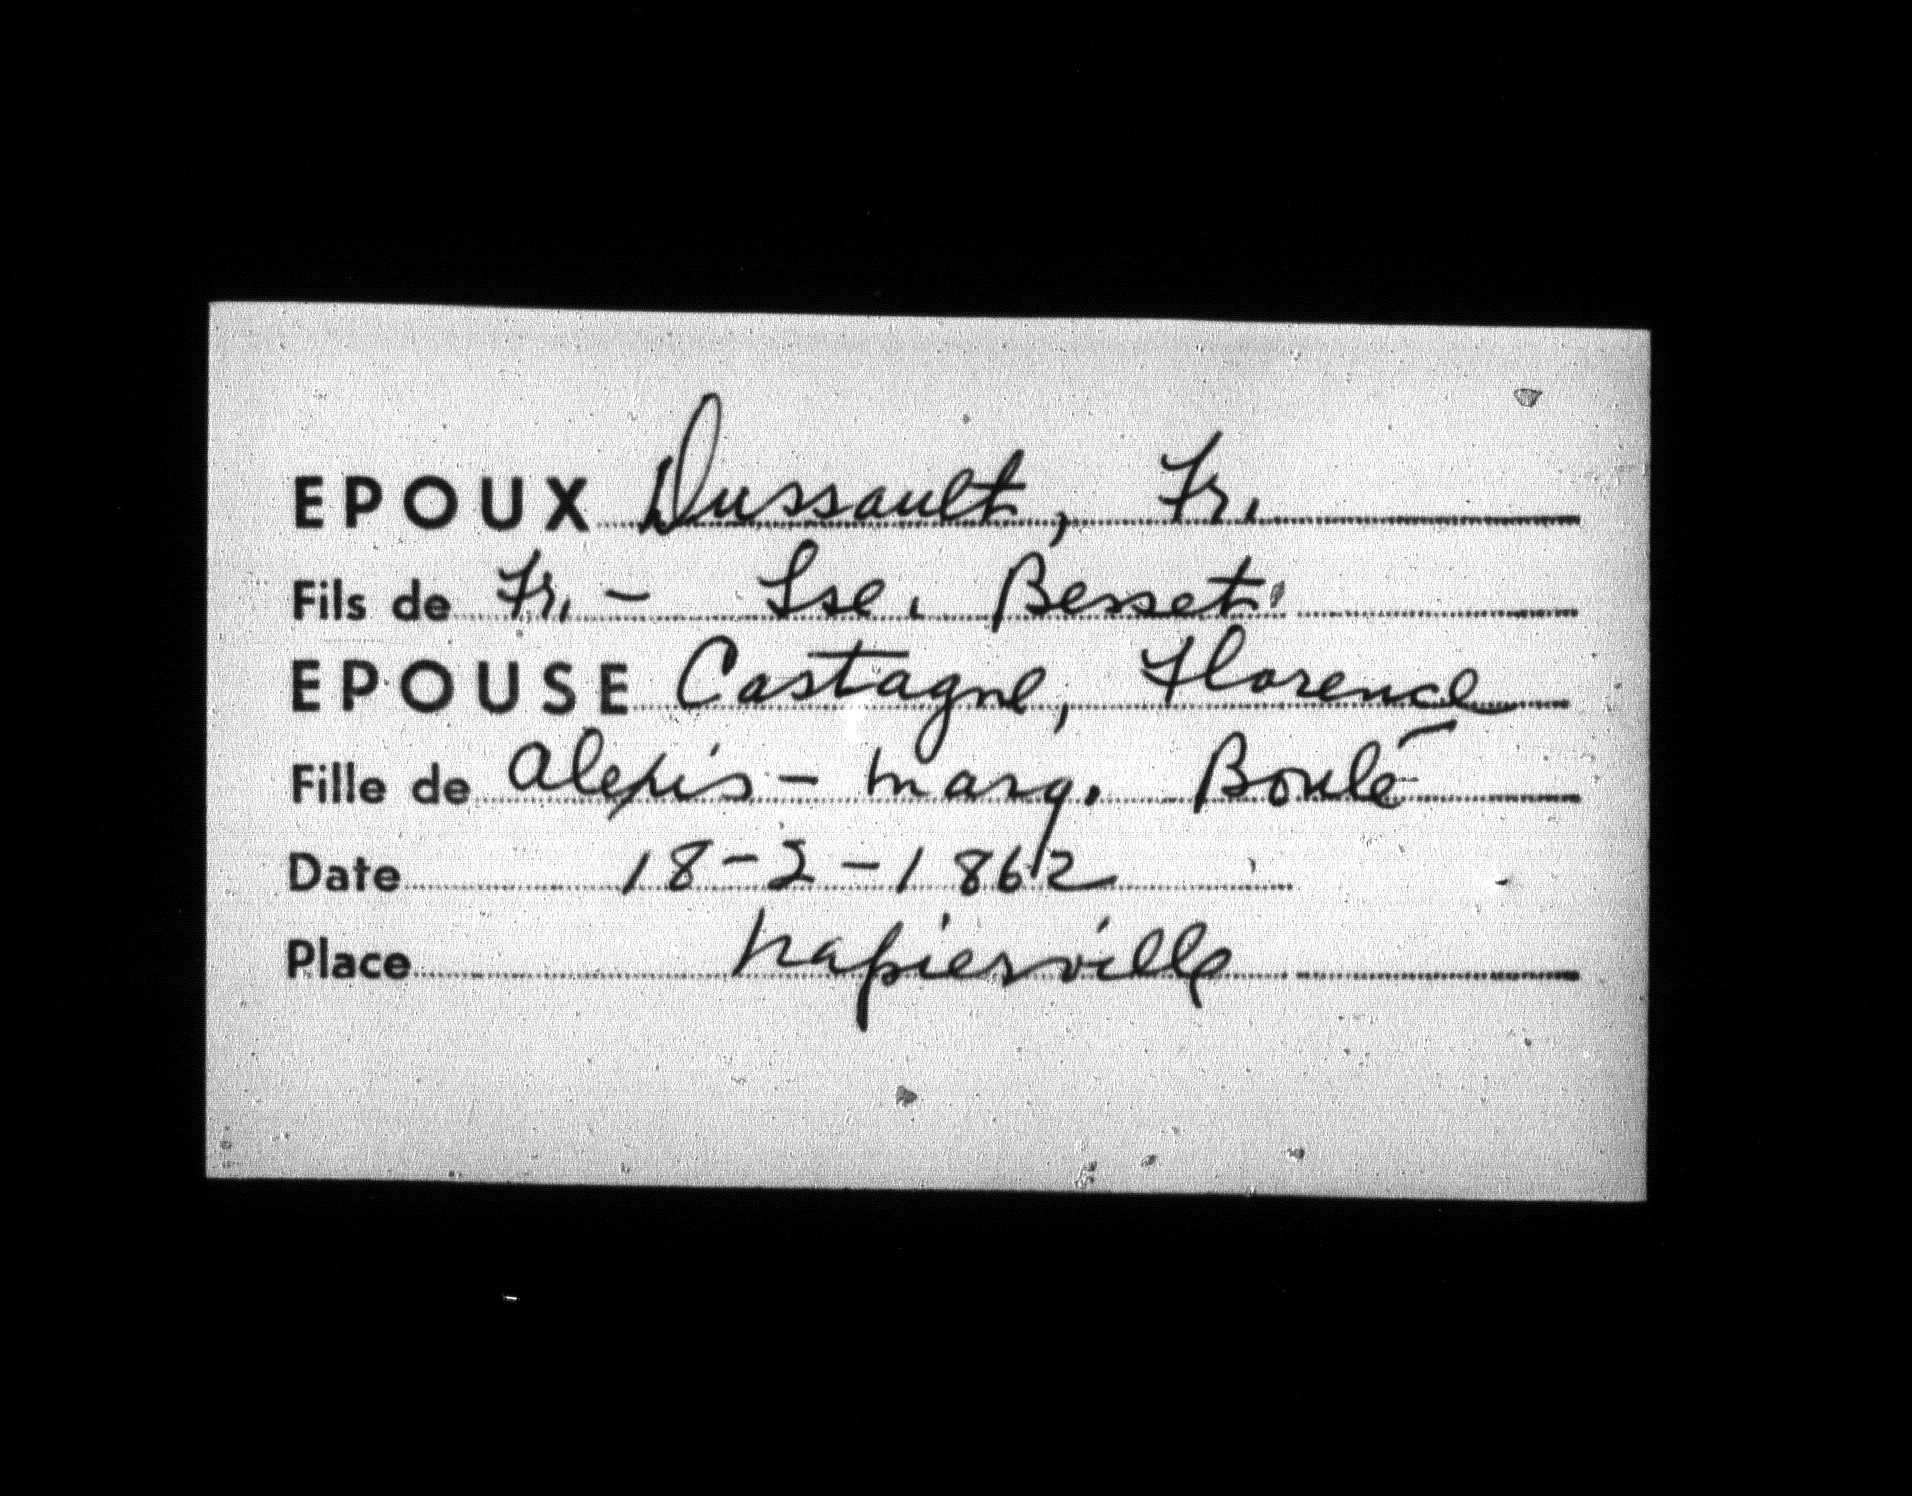 EPOUX Dussault, Fr.
Fils de Fr. - Lse. Besset
EPOUSE Castagne, Florence
Fille de Alexis - Marg. Boulé
Date 18-2-1862
Place Napierville